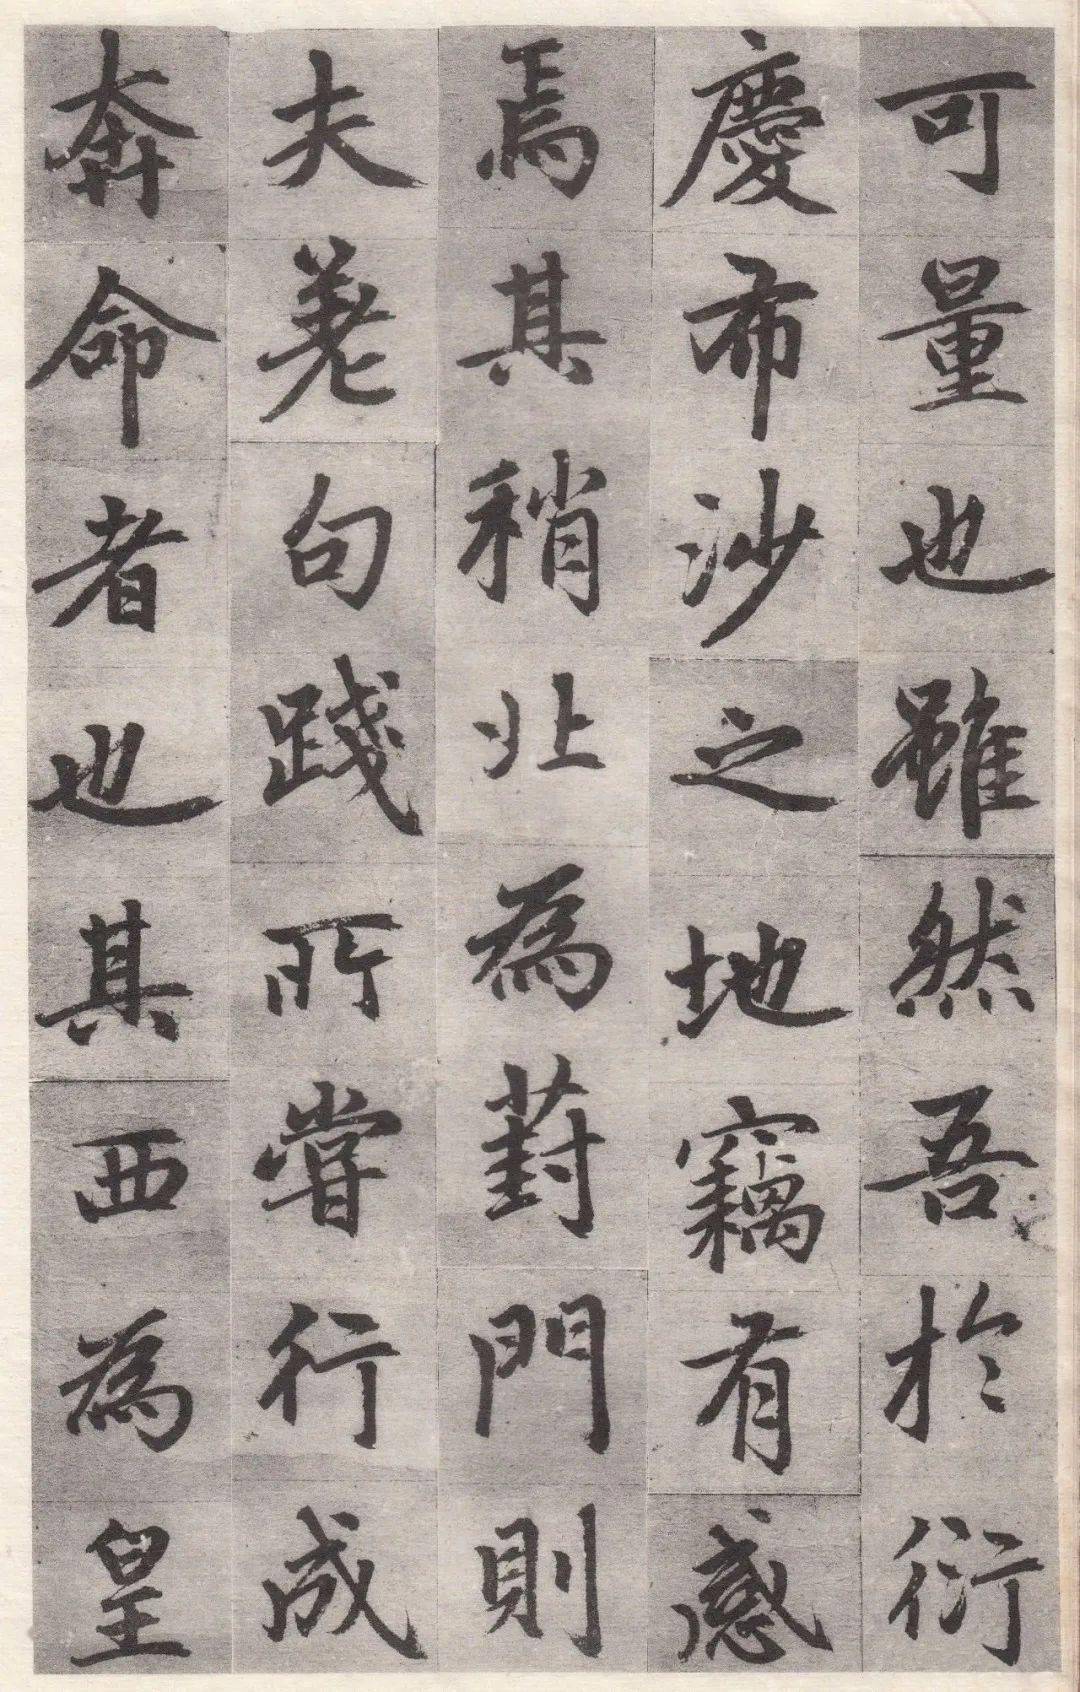 可量也雖然吾於衍
慶布沙之地竊有感
焉其稍北為葑門則
夫差句踐所嘗行成
奔命者也其西為皇